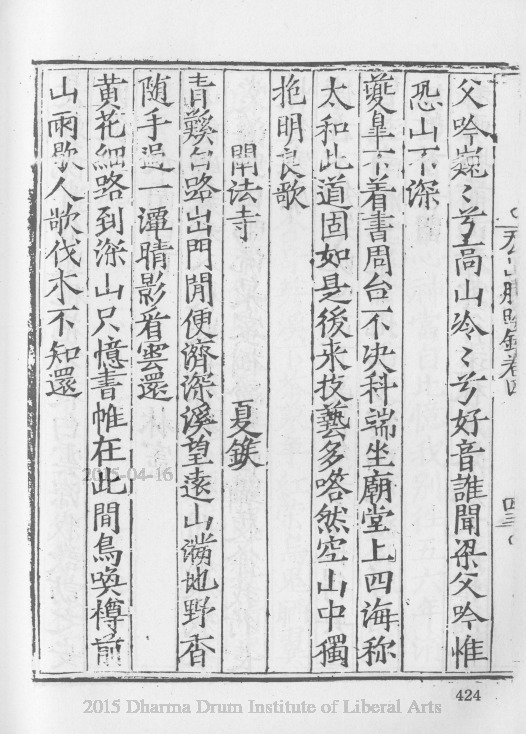 父吟巍〻兮高山泠〻兮好音誰聞梁父吟惟
恐山不深
夔皐不着書周台不决科端坐廟堂上四海称
太和此道固如是後来技藝多嗒然空山中獨
抱明良歌
開法寺
夏鍭
青鞵台路出門閒便濟深溪望遠山滿地野香
随手過一潭晴影看雲還
黄花細路到深山只憶書帷在此間鳥喚樽前
山雨歇人欹伐木不知還
2015-04-16
424
2015 Dharma Drum Institute of Liberal Arts